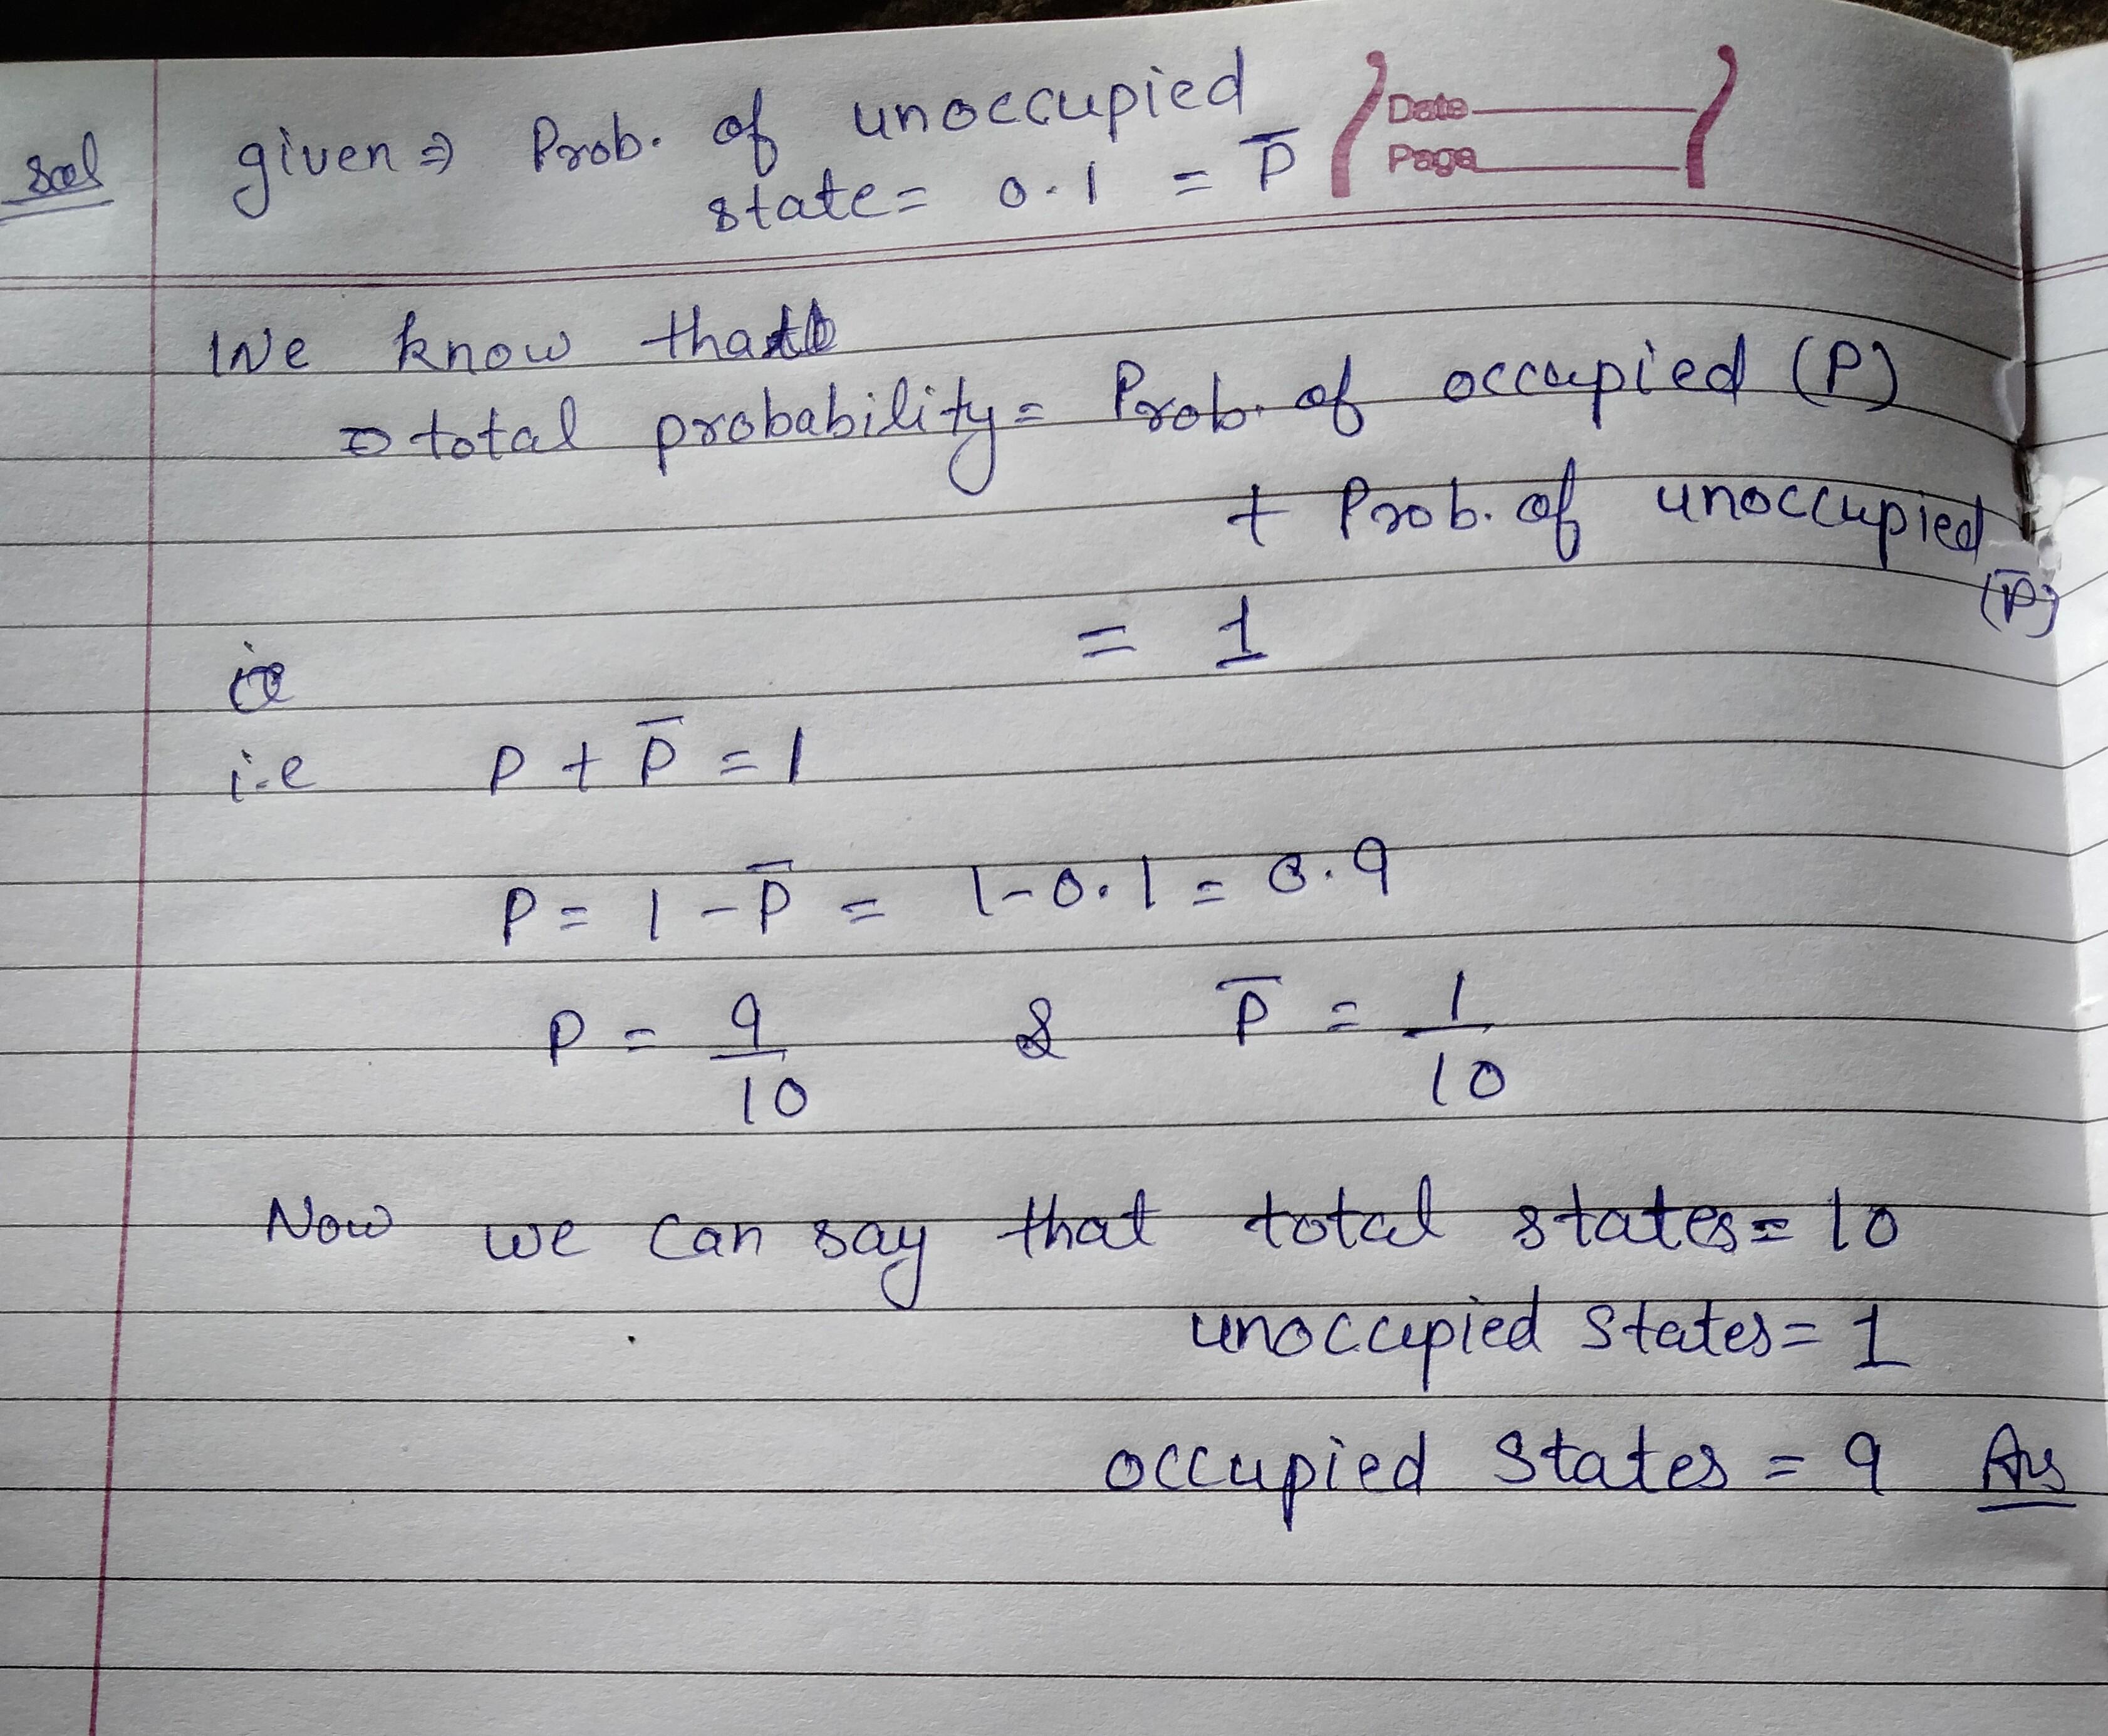 sol given ⇒ Prob. of unoccupied
state = 0.1 = P̄
Date
Page
We know that
⇒ total probability = Prob. of occupied (P)
+ Prob. of unoccupied (P̄)
= 1
i.e P + P̄ = 1
P = 1 - P̄ = 1-0.1 = 0.9
P = 9/10 & P̄ = 1/10
Now we can say that total states = 10
unoccupied states = 1
occupied states = 9 Ans